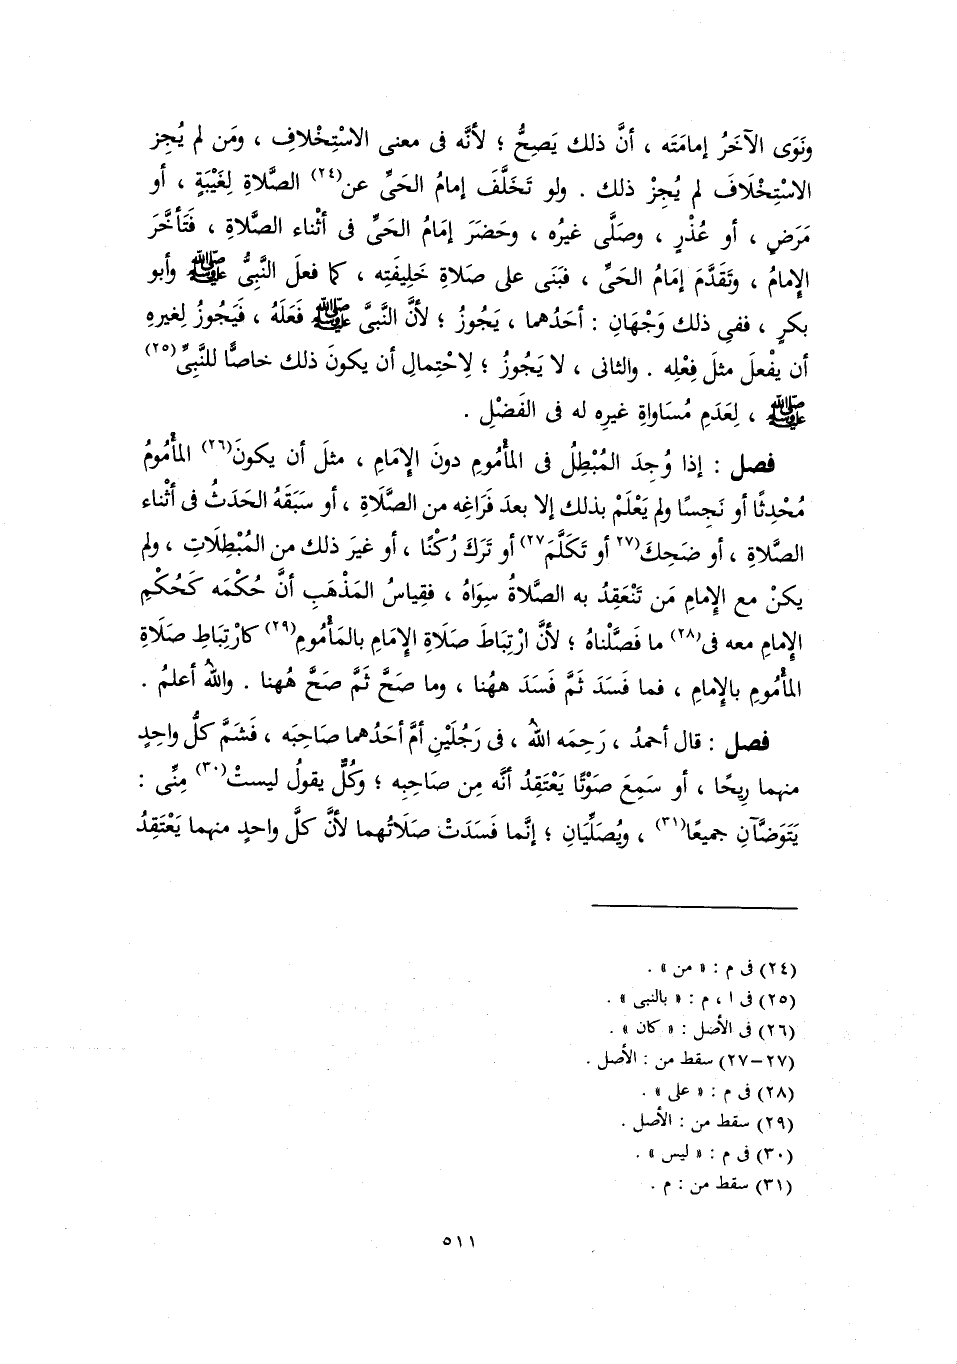 ونَوَى الآخَرُ إمامَتَه ، أنَّ ذلك يَصِحُّ ؛ لأنَّه فى معنى الاسْتِخْلافِ ، ومَن لم يُجِز
الاسْتِخْلَافَ لم يُجِزْ ذلك . ولو تَخَلَّفَ إمامُ الحَىِّ عن(٢٤) الصَّلاةِ لِغَيْبَةٍ ، أو
مَرَضٍ ، أو عُذْرٍ ، وصَلَّى غيرُه ، وحَضَرَ إمَامُ الحَىِّ فى أثْناء الصَّلاةِ ، فَتَأخَّرَ
الإِمامُ ، وتَقَدَّمَ إمَامُ الحَىِّ ، فبَنَى على صَلاةِ خَلِيفَتِه ، كما فعلَ النَّبِىُّ ﷺ وأبو
بكرٍ ، ففى ذلك وَجْهَانِ : أحَدُهما ، يَجُوزُ ؛ لأنَّ النَّبِىَّ ﷺ فَعَلَهُ ، فَيَجُوزُ لِغيرهِ
أن يفْعلَ مثلَ فِعْلِه . والثانى ، لا يَجُوزُ ؛ لِاحْتِمالِ أن يكونَ ذلك خاصًّا للنَّبِىِّ(٢٥)
ﷺ ، لِعَدَمِ مُسَاواةِ غيرِه له فى الفَضْلِ .
فصل : إذا وُجِدَ المُبْطِلُ فى المأْمُومِ دونَ الإِمَامِ ، مثلَ أن يكونَ(٢٦) المأْمُومُ
مُحْدِثًا أو نَجِسًا ولم يَعْلَمْ بذلك إلا بعدَ فَرَاغِه من الصَّلَاةِ ، أو سَبَقَهُ الحَدَثُ فى أثْناء
الصَّلاةِ ، أو ضَحِكَ(٢٧ أو تَكَلَّمَ٢٧) أو تَرَكَ رُكْنًا ، أو غيرَ ذلك من المُبْطِلَاتِ ، ولم
يكنْ مع الإِمامِ مَن تَنْعَقِدُ به الصَّلاةُ سِوَاهُ ، فقِياسُ المَذْهَبِ أنَّ حُكْمَه كَحُكْمِ
الإِمامِ معه فى(٢٨) ما فَصَّلْناهُ ؛ لأنَّ ارْتِبَاطَ صَلَاةِ الإِمَامِ بالمَأْمُومِ(٢٩) كارْتِباطِ صَلَاةِ
المأْمُومِ بالإِمامِ ، فما فَسَدَ ثَمَّ فَسَدَ ههُنا ، وما صَحَّ ثَمَّ صَحَّ هُهنا . واللهُ أعلمُ .
فصل : قال أحمدُ ، رَحِمَه اللهُ ، فى رَجُلَيْنِ أمَّ أحَدُهما صَاحِبَه ، فَشَمَّ كلُّ واحِدٍ
منهما رِيحًا ، أو سَمِعَ صَوْتًا يَعْتَقِدُ أنَّه مِن صَاحِبِه ؛ وكُلٌّ يقولُ ليستْ(٣٠) مِنِّى :
يَتَوَضَّآنِ جميعًا(٣١) ، ويُصَلِّيَانِ ؛ إنَّما فَسَدَتْ صَلَاتُهما لأنَّ كلَّ واحدٍ منهما يَعْتَقِدُ
(٢٤) فى م : « من » .
(٢٥) فى ا ، م : « بالنبى » .
(٢٦) فى الأصل : « كان » .
(٢٧-٢٧) سقط من : الأصل .
(٢٨) فى م : « على » .
(٢٩) سقط من : الأصل .
(٣٠) فى م : « ليس » .
(٣١) سقط من : م .
٥١١